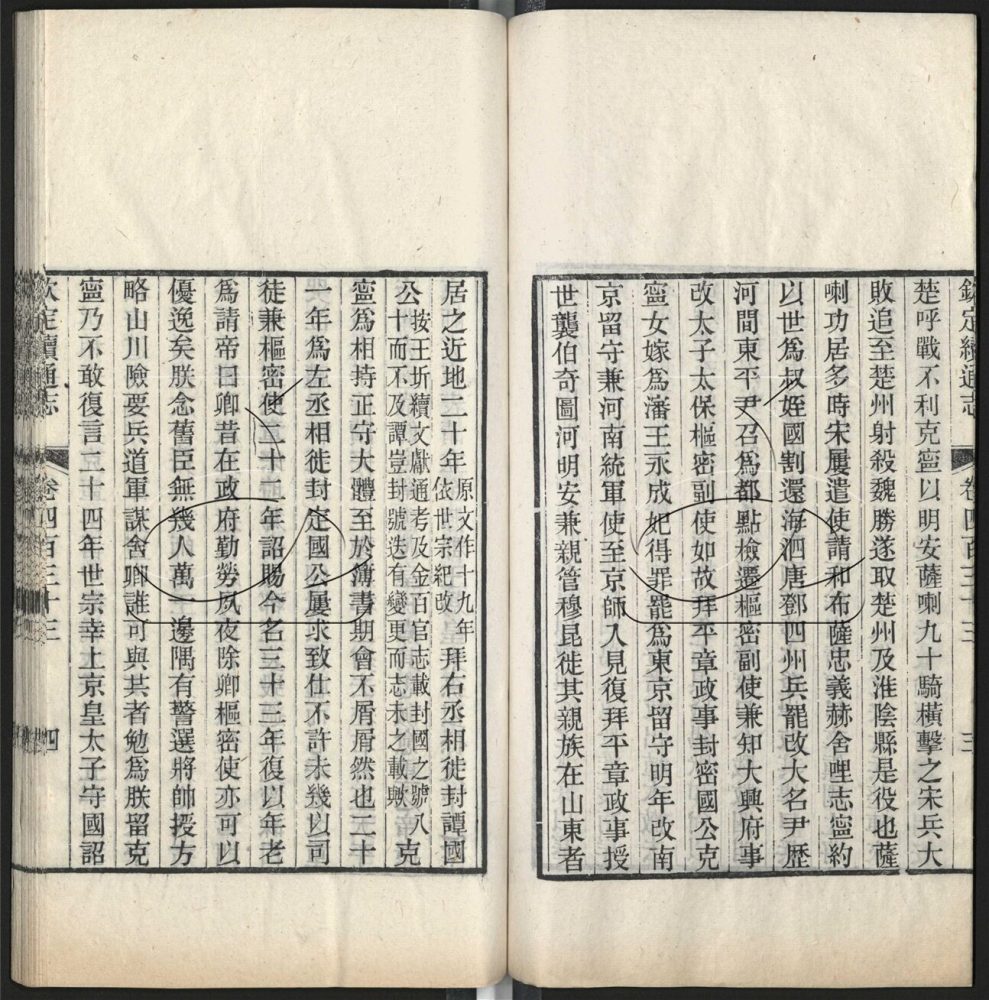 欽定續通志 卷四百三十三 三
楚呼戰不利克寧以明安薩喇九十騎橫擊之宋兵大
敗追至楚州射殺魏勝遂取楚州及淮陰縣是役也薩
喇功居多時宋屢遣使請和布薩忠義赫舍哩志寧約
以世為叔姪國割還海泗唐鄧四州兵罷改大名尹歷
河間東平尹召為都點檢遷樞密副使兼知大興府事
改太子太保樞密副使如故拜平章政事封密國公克
寧女嫁為瀋王永成妃得罪罷為東京留守明年改南
京留守兼河南統軍使至京師入見復拜平章政事授
世襲伯奇圖河明安兼親管穆昆徙其親族在山東者
居之近地二十年原文作十九年依世宗紀改拜右丞相徙封譚國
公按王圻續文獻通考及金百官志載封國之號八十而不及譚豈封號迭有變更而志未之載歟克
寧為相持正守大體至於簿書期會不屑屑然也二十
一年為左丞相徙封定國公屢求致仕不許未幾以司
徒兼樞密使二十二年詔賜今名三十三年復以年老
為請帝曰卿昔在政府勤勞夙夜除卿樞密使亦可以
優逸矣朕念舊臣無幾人萬一邊隅有警選將帥授方
略山川險要兵道軍謀舍卿誰可與共者勉為朕留克
寧乃不敢復言二十四年世宗幸上京皇太子守國詔
欽定續通志 卷四百三十三 四